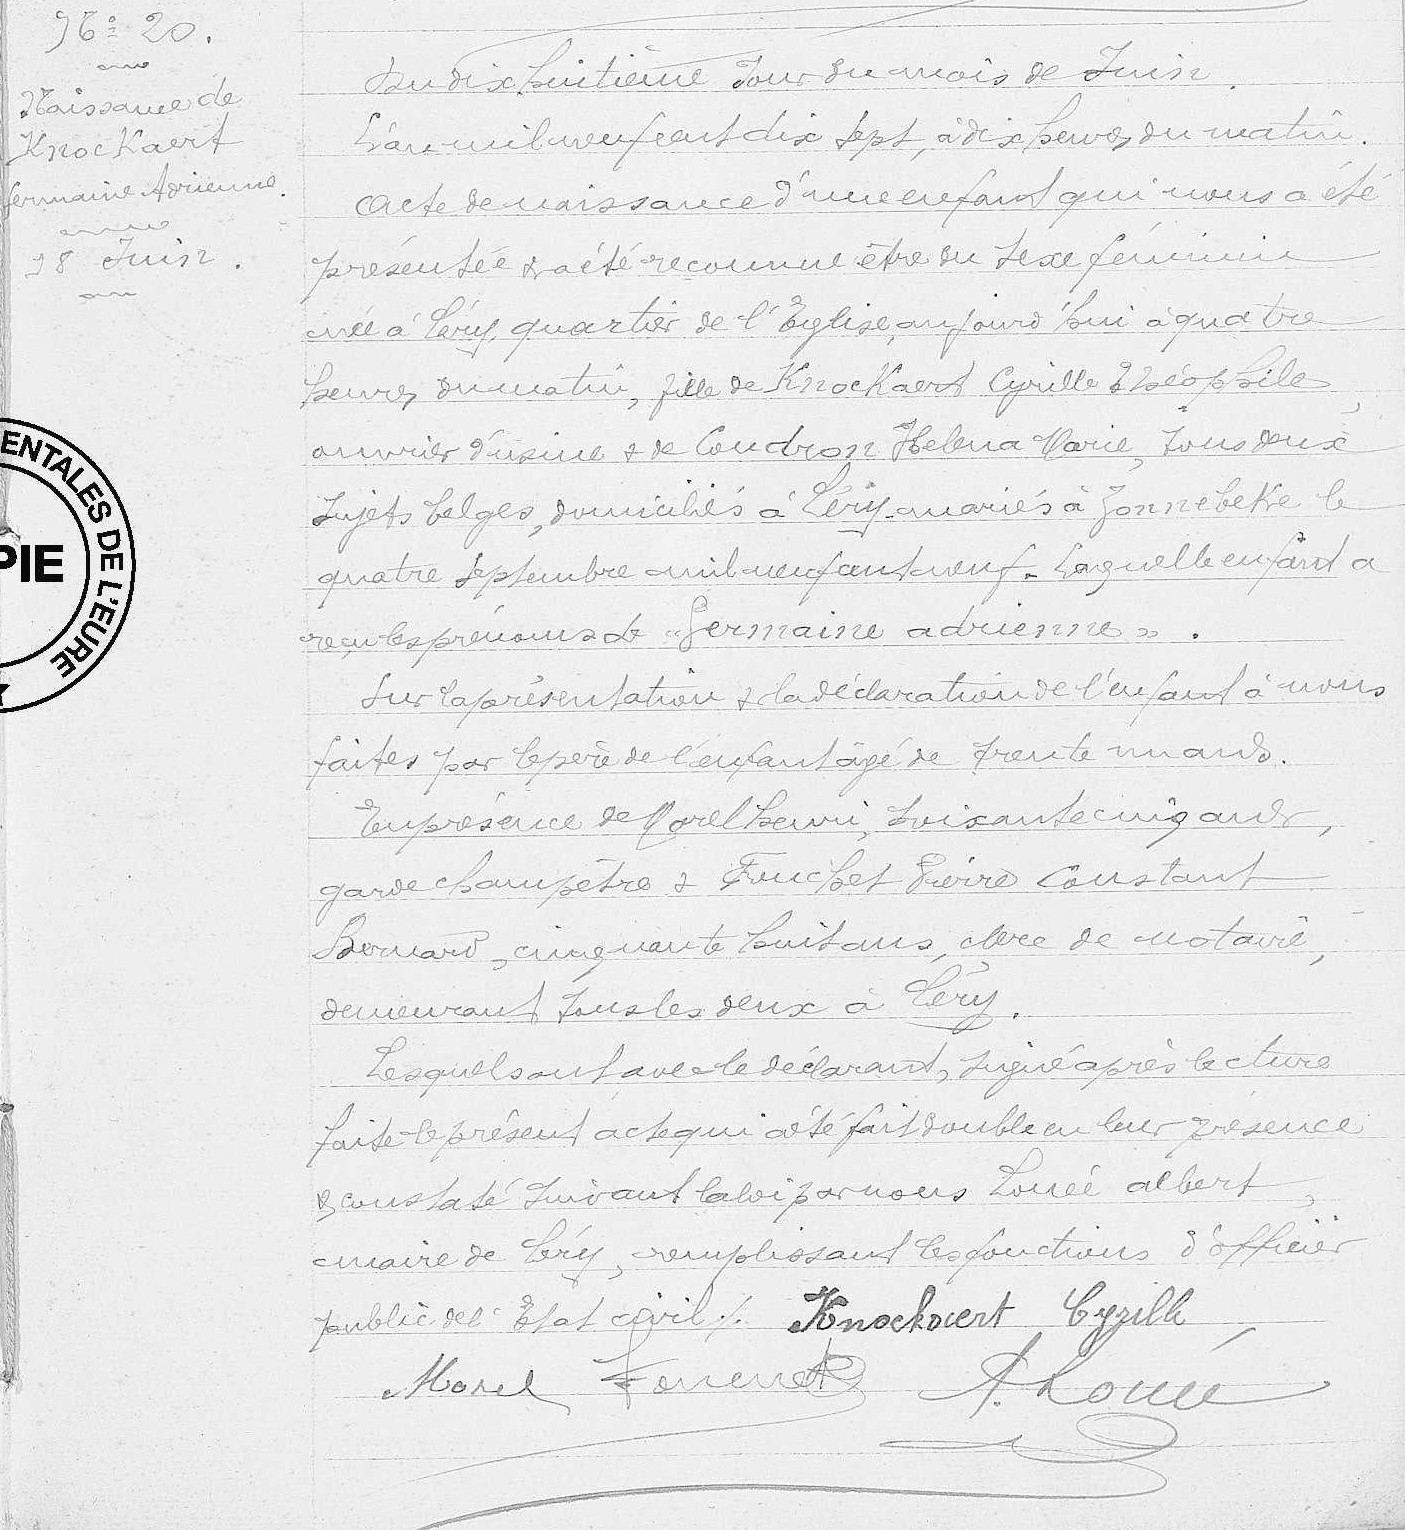 No 20.
Naissance de
Knockaert
Germaine Adrienne.
18 Juin.
ENTALES DE L'EURE
PIE
Du dix huitième Jour du mois de Juin.
L'an mil neuf cent dix sept, à dix heures du matin.
Acte de naissance d'une enfant qui nous a été
présentée & a été reconnue être du sexe féminin
née à Léry, quartier de l'Eglise, aujourd'hui à quatre
heures du matin, fille de Knockaert Cyrille Théophile
ouvrier d'usine & de Coudron Helena Marie, tous deux
sujets belges, domiciliés à Léry mariés à Zonnebeke le
quatre septembre mil neuf cent neuf. Laquelle enfant a
reçu les prénoms de "Germaine adrienne".
Sur la présentation & la déclaration de l'enfant à nous
faites par le père de l'enfant âgé de trente un ans.
En présence de Morel henri, soixante cinq ans,
garde champêtre & Fouchet Pierre Constant
Bernard, cinquante huit ans, clerc de notaire,
demeurant tous les deux à Léry.
Lesquels ont avec le déclarant, signé après lecture
faite le présent acte qui a été fait double en leur présence
& constaté suivant la loi par nous Loueé albert,
maire de Léry, remplissant les fonctions d'officier
public de l'Etat civil ./. Knockaert Cyrille
Morel A. Loué